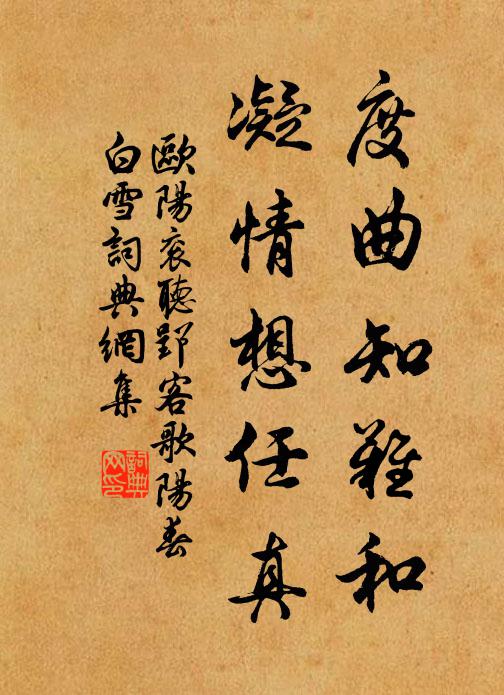 度曲知難和
凝情想任真
歐陽衮聽郢客歌陽春
白雪詞典網集
詞典网印